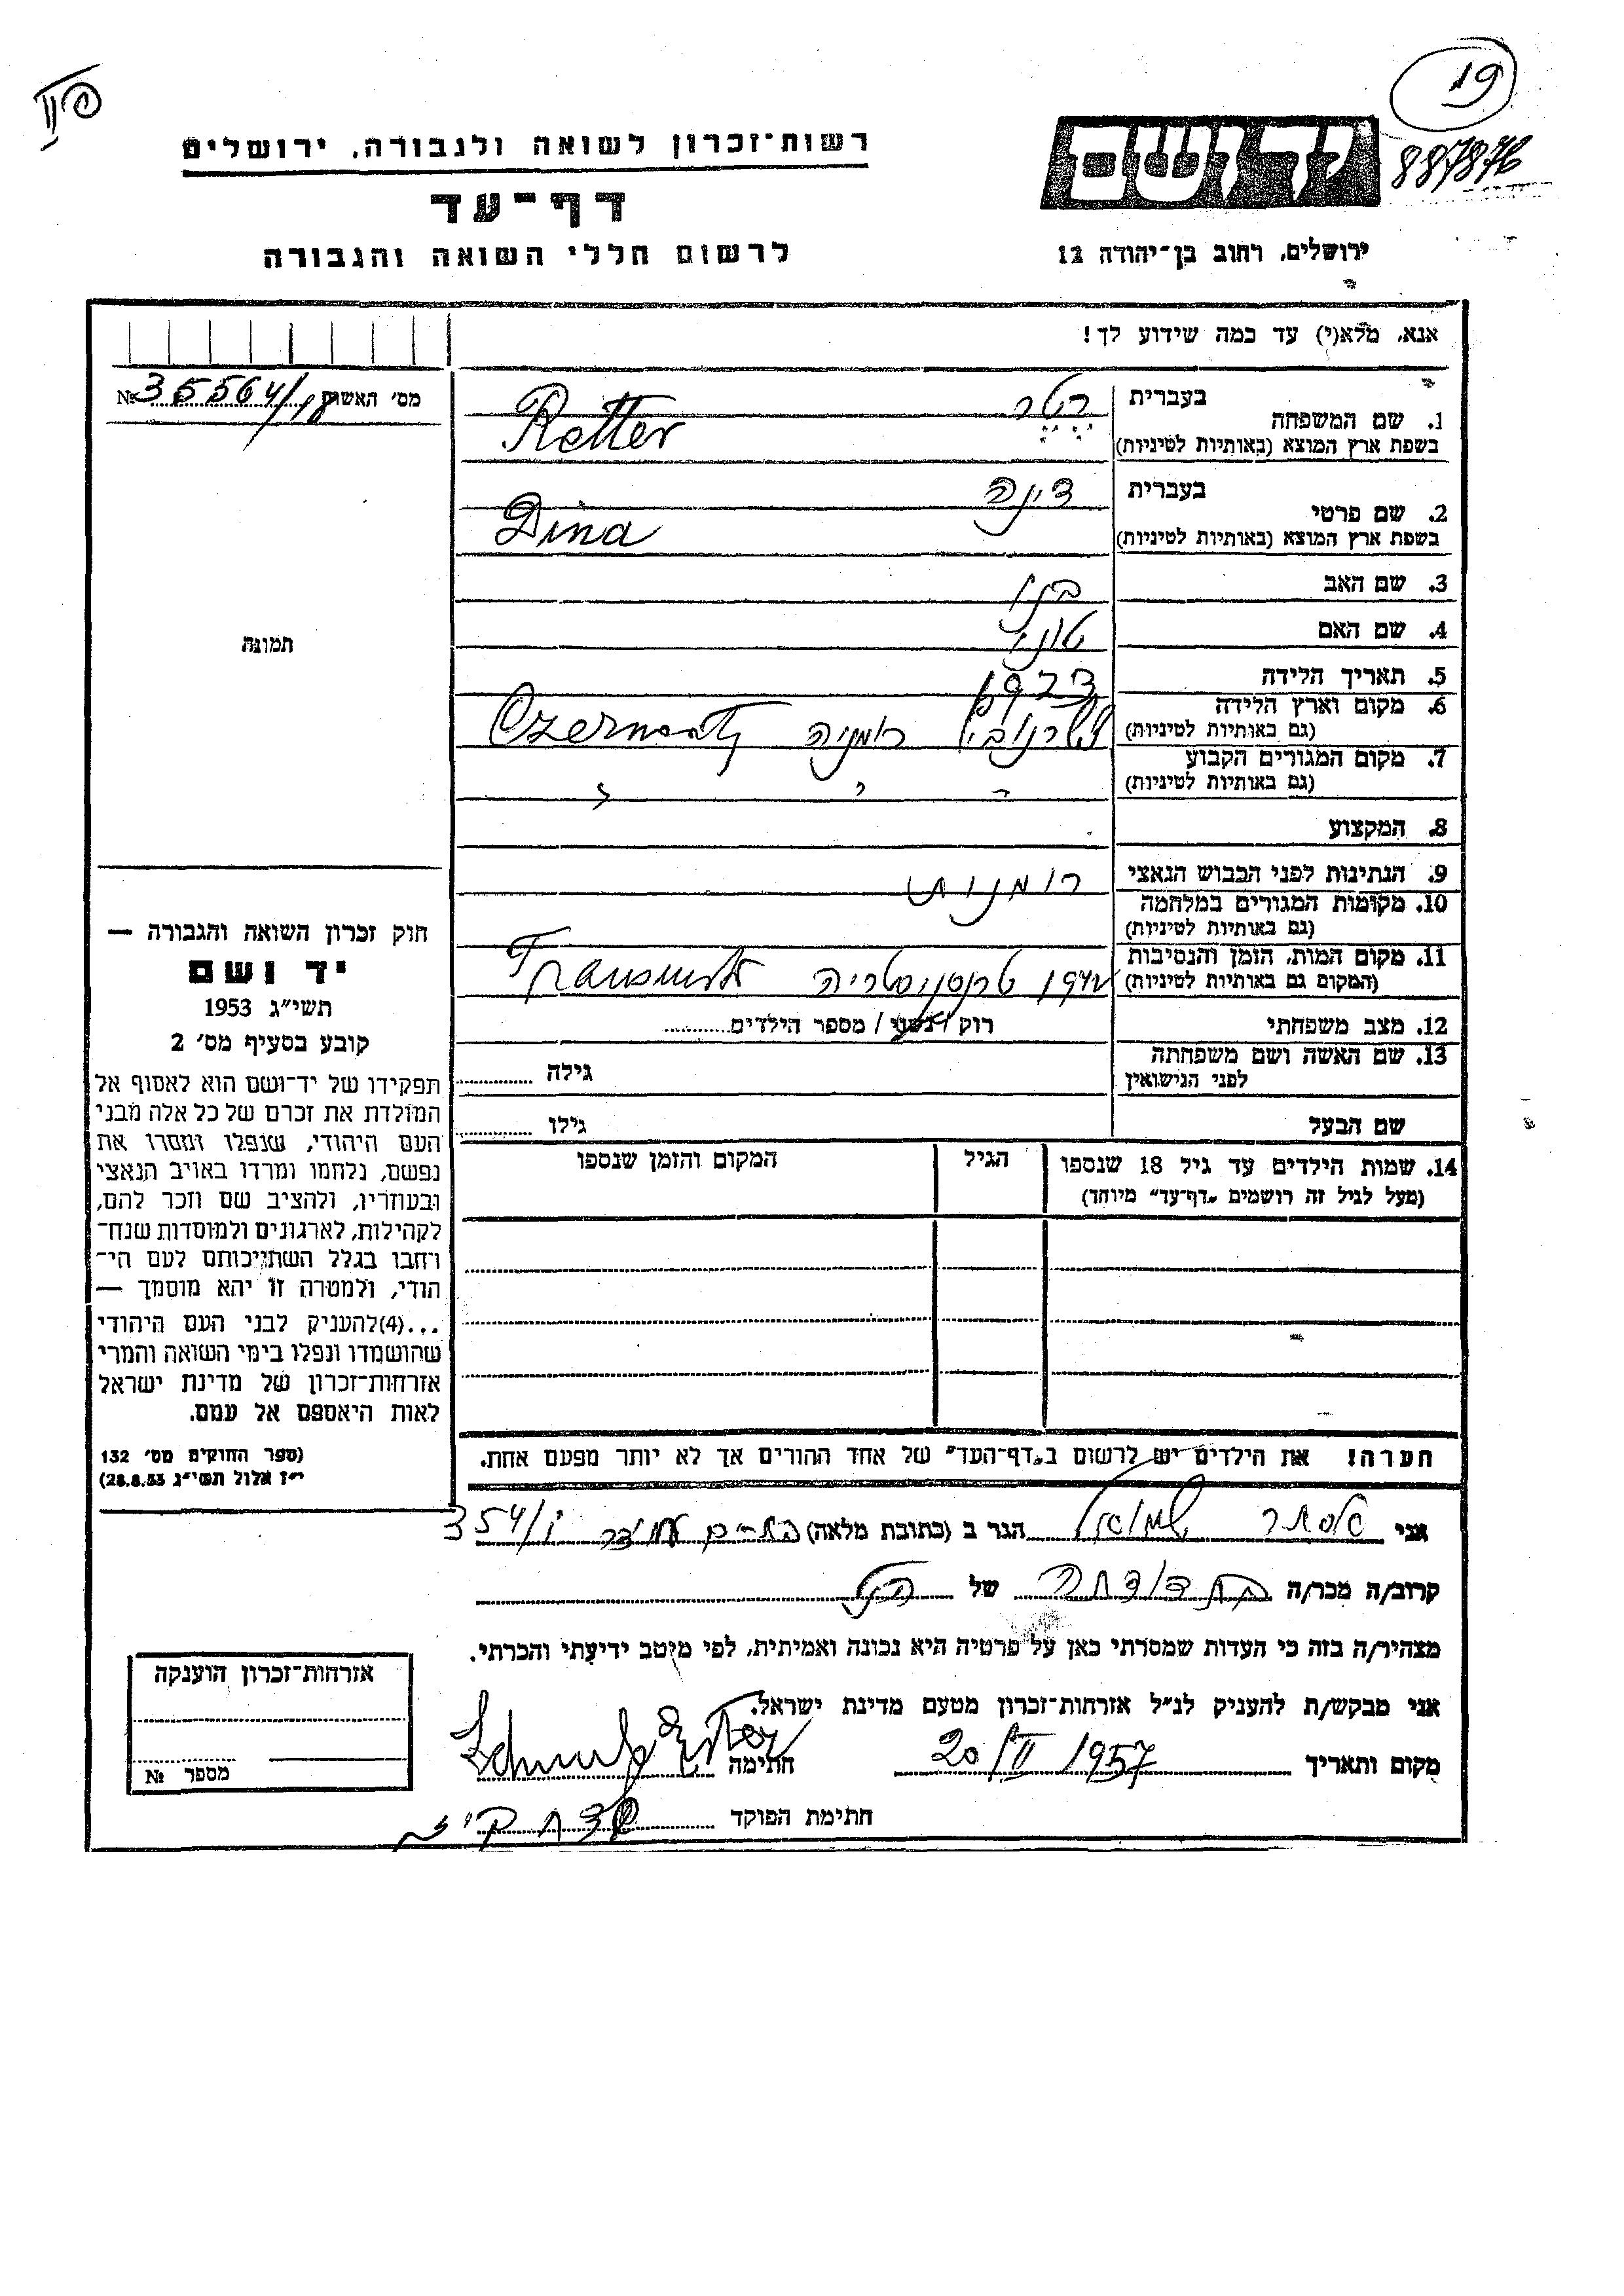 19
887876
יד ושם
רשות־זכרון לשואה ולגבורה, ירושלים
דף־עד
לרשום חללי השואה והגבורה
ירושלים, רחוב בן־יהודה 12
אנא, מלא(י) עד כמה שידוע לך!
מס' האשור № 35564/18
1. שם המשפחה בעברית רטר
בשפת ארץ המוצא (באותיות לטיניות) Retter
2. שם פרטי בעברית דינה
בשפת ארץ המוצא (באותיות לטיניות) Dina
3. שם האב בנו
4. שם האם טוני
תמונה
5. תאריך הלידה 1923
6. מקום וארץ הלידה
(גם באותיות לטיניות) צ'רנוביץ רומניה
7. מקום המגורים הקבוע
(גם באותיות לטיניות)
8. המקצוע
9. הנתינות לפני הכבוש הנאצי רומנית
10. מקומות המגורים במלחמה
(גם באותיות לטיניות)
11. מקום המות, הזמן והנסיבות
(המקום גם באותיות לטיניות) טרנסניסטריה
12. מצב משפחתי רוק / נשוי / מספר הילדים
13. שם האשה ושם משפחתה
לפני הנישואין גילה
שם הבעל גילו
14. שמות הילדים עד גיל 18 שנספו הגיל המקום והזמן שנספו
(מעל לגיל זה רושמים „דף־עד" מיוחד)
חוק זכרון השואה והגבורה —
יד ושם
תשי"ג 1953
קובע בסעיף מס' 2
תפקידו של יד־ושם הוא לאסוף אל
המולדת את זכרם של כל אלה מבני
העם היהודי, שנפלו ומסרו את
נפשם, נלחמו ומרדו באויב הנאצי
ובעוזריו, ולהציב שם וזכר להם,
לקהילות, לארגונים ולמוסדות שנח־
רבו בגלל השתייכותם לעם הי־
הודי, ולמטרה זו יהא מוסמך —
...(4)להעניק לבני העם היהודי
שהושמדו ונפלו בימי השואה והמרי
אזרחות־זכרון של מדינת ישראל
לאות היאספם אל עמם.
(ספר החוקים מס' 132
י"ז אלול תשי"ג 28.8.53)
הערה! את הילדים יש לרשום ב„דף־העד" של אחד ההורים אך לא יותר מפעם אחת.
אני אסתר שמואל הגר ב (כתובת מלאה) בת-ים 354/
קרוב/ה מכר/ה בת דודתה של הנ"ל
מצהיר/ה בזה כי העדות שמסרתי כאן על פרטיה היא נכונה ואמיתית, לפי מיטב ידיעתי והכרתי.
אני מבקש/ת להעניק לנ"ל אזרחות־זכרון מטעם מדינת ישראל.
מקום ותאריך 20/II 1957 חתימה Ester
חתימת הפוקד
אזרחות־זכרון הוענקה
מספר №